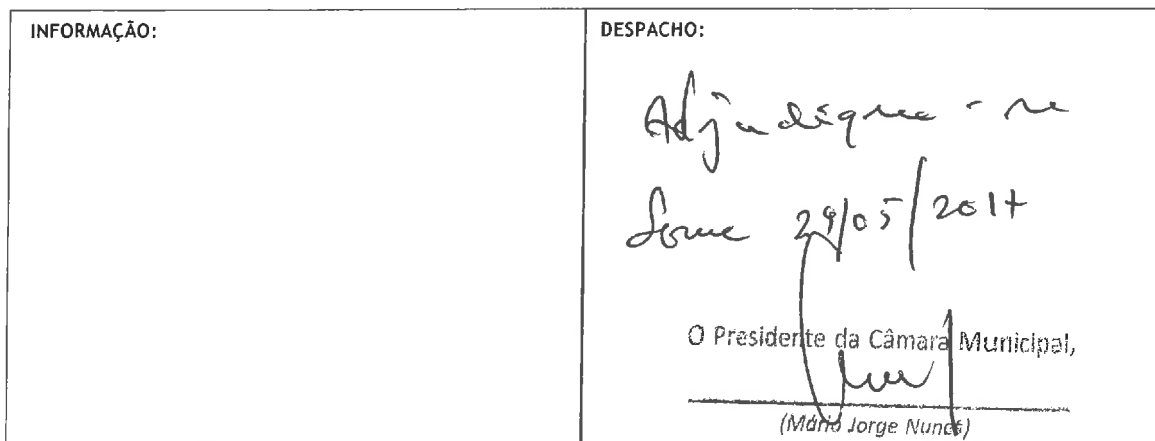 INFORMAÇÃO:
DESPACHO:
Adjudique-se
Soure 29/05/2017
O Presidente da Câmara Municipal,
(Mário Jorge Nunes)